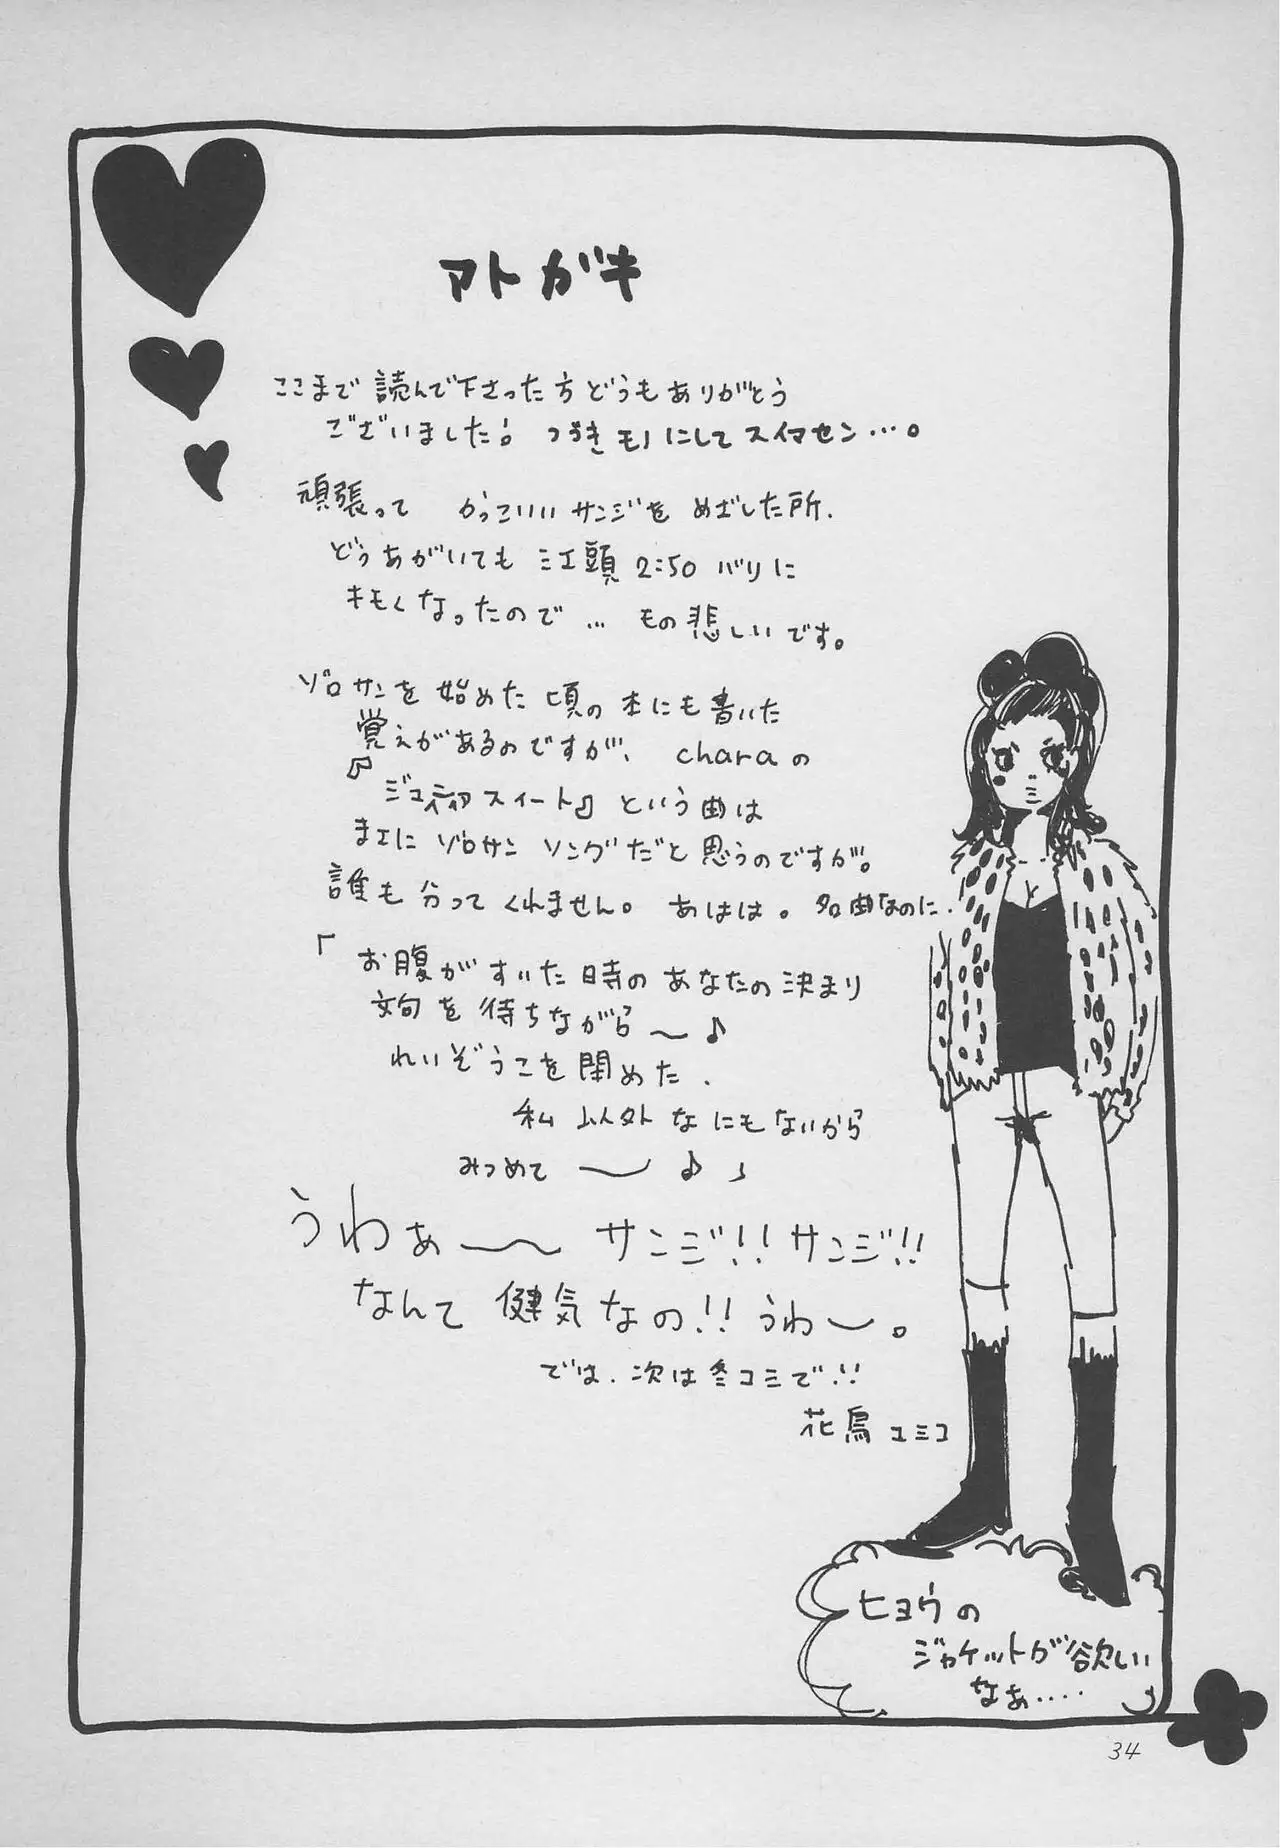 アトガキ
ここまで読んで下さった方どうもありがとう
ございました! つづきモノにしてスイマセン…。
頑張って かっこいいサンジをめざした所、
どうあがいても 江頭2:50バリに
キモくなったので… もの悲しいです。
ゾロサンを始めた頃の本にも書いた
覚えがあるのですが、charaの
『ジュニティアスイート』という曲は
まさにゾロサンソングだと思うのですが。
誰も分ってくれません。あはは。名曲なのに、
「お腹がすいた時のあなたの決まり
文句を待ちながら〜♪
れいぞうこを閉めた、
私以外なにもないから
みつめて〜♪」
うわぁ〜〜 サンジ!!サンジ!!
なんて健気なの!!うわー。
では、次は冬コミで!!
花鳥ユミコ
ヒョウの
ジャケットが欲しい
なぁ‥‥
34